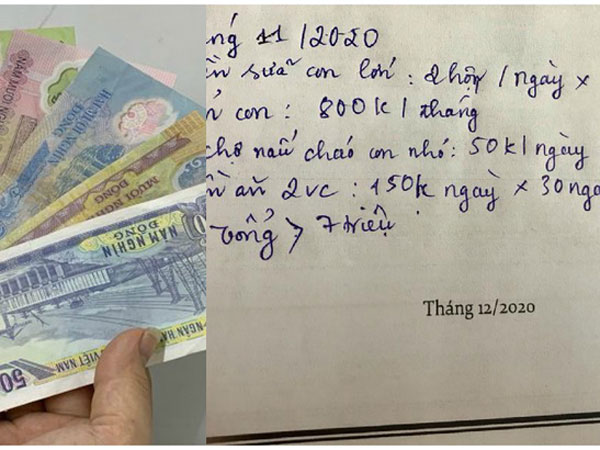 NĂM MƯƠI NGHÌN
HAI MƯƠI NGHÌN
ĐỒNG
MƯỜI NGHÌN
ĐỒNG
NĂM NGHÌN
ĐỒNG
NGÂN HÀNG
VIỆT NAM
ng 11/2020
sữa con lớn: 2 hộp/ngày x
con: 800k/tháng
chợ nấu cháo con nhỏ: 50k/ngày
ăn 2vc: 150k ngày x 30 ngà
tổng > 7 triệu
Tháng 12/2020